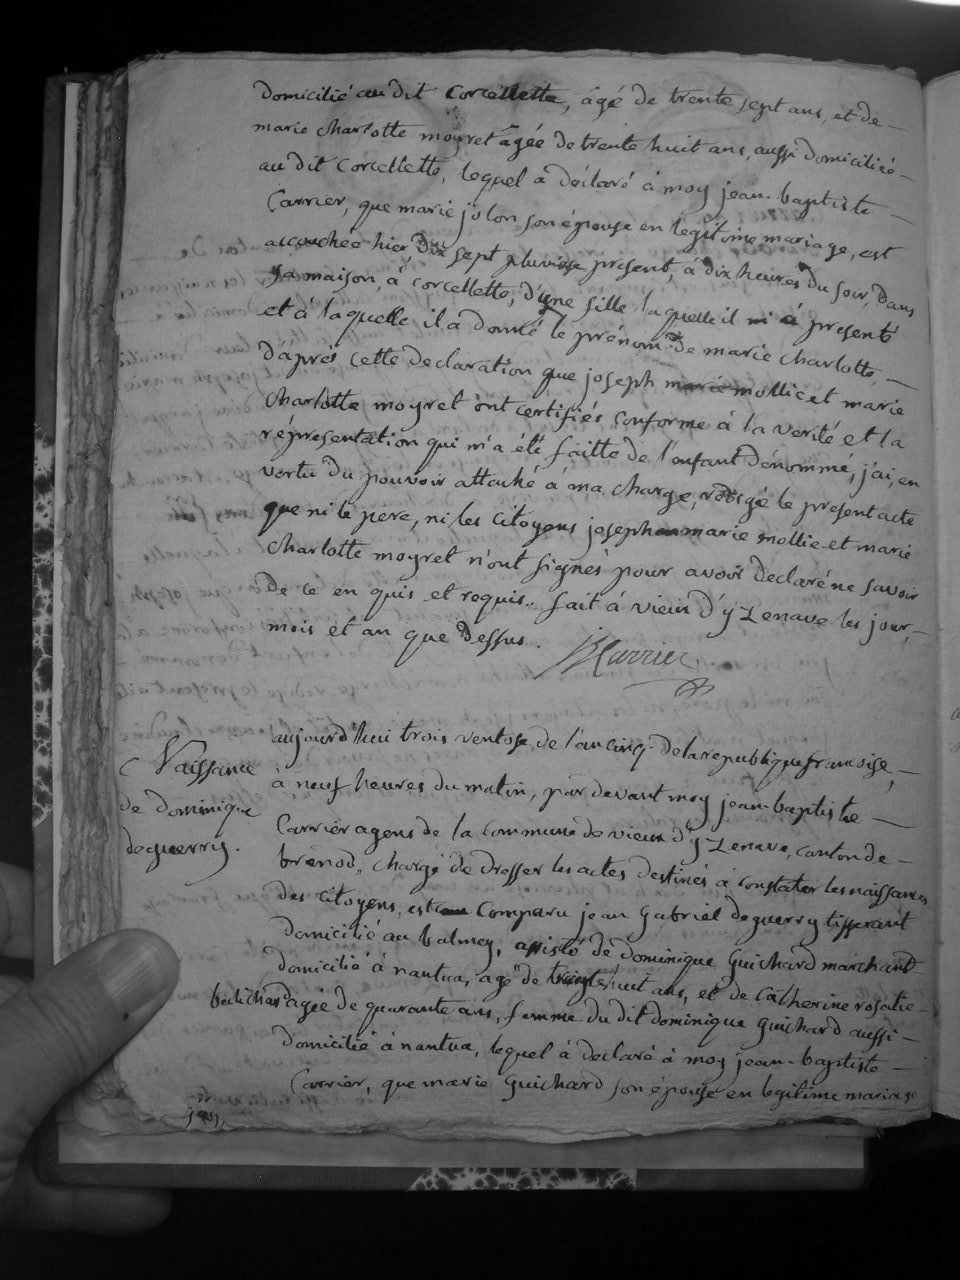 domicilié au dit Corcellette, âgé de trente sept ans, et de
marie charlotte moyret âgée de trente huit ans, aussi domiciliée
au dit Corcellette, lequel a déclaré à moy jean baptiste
Carrier, que marie jolon son épouse en légitime mariage, est
accouchée hier dix sept pluviose present, à dix heures du soir, dans
sa maison, à corcellette, d'une fille laquelle il m'a presenté
et à laquelle il a donné le prénom de marie charlotte,
d'aprés cette declaration que joseph mollie et marie
charlotte moyret ont certifiés conforme à la verité et la
répresentation qui m'a été faitte de l'enfant dénommé, j'ai, en
vertu du pouvoir attaché à ma charge, rédigé le present acte
que ni le pere, ni les citoyens joseph marie mollie et marie
charlotte moyret n'ont signés pour avoir declaré ne savoir
de ce enquis et requis. fait à vieux d'yzenave les jour,
mois et an que dessus.
JBCarrier
Naissance
de dominique
deguerry.
aujourd'hui trois ventose de l'an cinq de la republique francoise,
à neuf heures du matin, par devant moy jean baptiste
Carrier agens de la commune de vieux d'yzenave, canton de
brénod, chargé de dresser les actes destinés à constater les naissances
des citoyens, est comparu jean gabriel deguerry tisserant
domicilié au balmey, assisté de dominique guichard marchant
domicilié à nantua, agé de huit ans, et de catherine rosalie
agée de quarante ans, femme du dit dominique guichard aussi
domicilié à nantua, lequel à déclaré à moy jean baptiste
Carrier, que marie guichard son épouse en legitime mariage